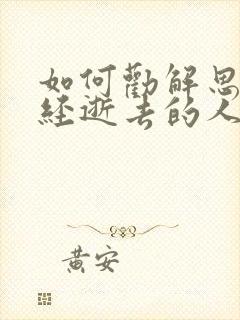 如何勸解思
經逝去的人
黃安